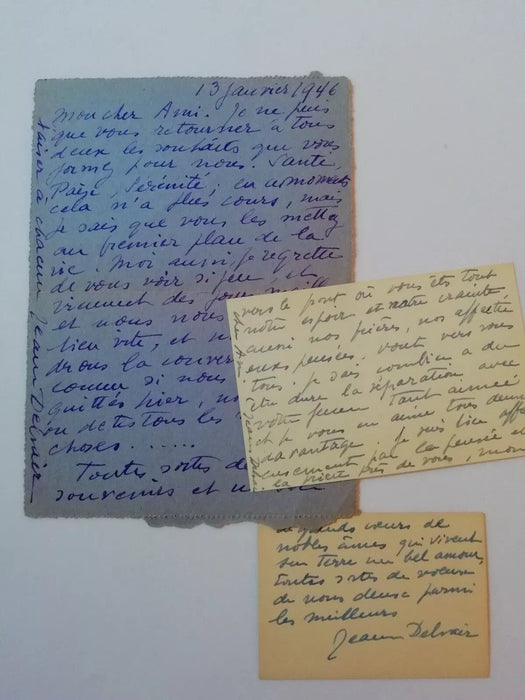 13 janvier 1946
Mon cher Ami. Je ne puis
que vous retourner à tous
deux les souhaits que vous
formez pour nous. Santé,
Paix, Sérénité, en ce moment
cela n'a plus cours, mais
je sais que vous les mettez
au premier plan de la
vie. Moi aussi je regrette
de vous voir si peu, et
viennent des jours meill
et nous nous
bien vite, et n
drons la conver
comme si nous
quittés hier, no
ou détestons les
choses......
Toutes sortes de
souvenirs et un
baiser à chacun Jeanne Delvair
vers le pont où vous êtes tout
notre espoir et notre crainte
aussi nos prières, nos affectu
euses pensées. vont vers vous
tous. Je sais combien a du
être dure la séparation avec
votre femme tant aimée
et je vous en aime tous deux
davantage. Je suis bien affec
tueusement par la pensée et
la prière près de vous, mon
grands cœurs de
nobles âmes qui vivent
sur terre un bel amour,
toutes sortes de vœux
de nous deux parmi
les meilleurs
Jeanne Delvair